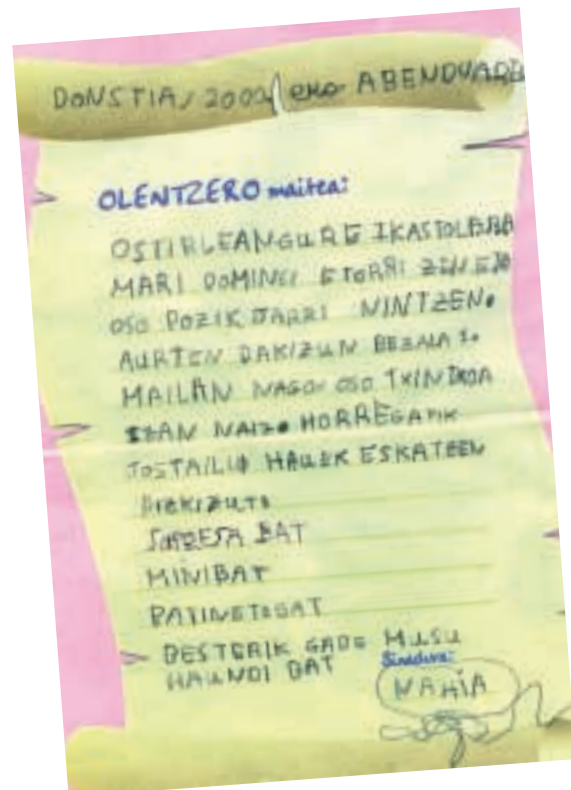 DONSTIA, 200 eko ABENDUAREN
OLENTZERO maitea:
OSTIRLEAN GURE IKASTOLARA
MARI DOMINGI ETORRI ZEN ETA
OSO POZIK JARRI NINTZEN.
AURTEN DAKIZUN BEZALA 1.
MAILAN NAGO. OSO TXINTXOA
IZAN NAIZ. HORREGATIK
JOSTAILU HAUEK ESKATZEN
DIZKIZUT:
SORPRESA BAT
MINIBAT
PATINETEBAT
BESTERIK GABE MUSU
HAUNDI BAT
Sinadura:
NAHIA